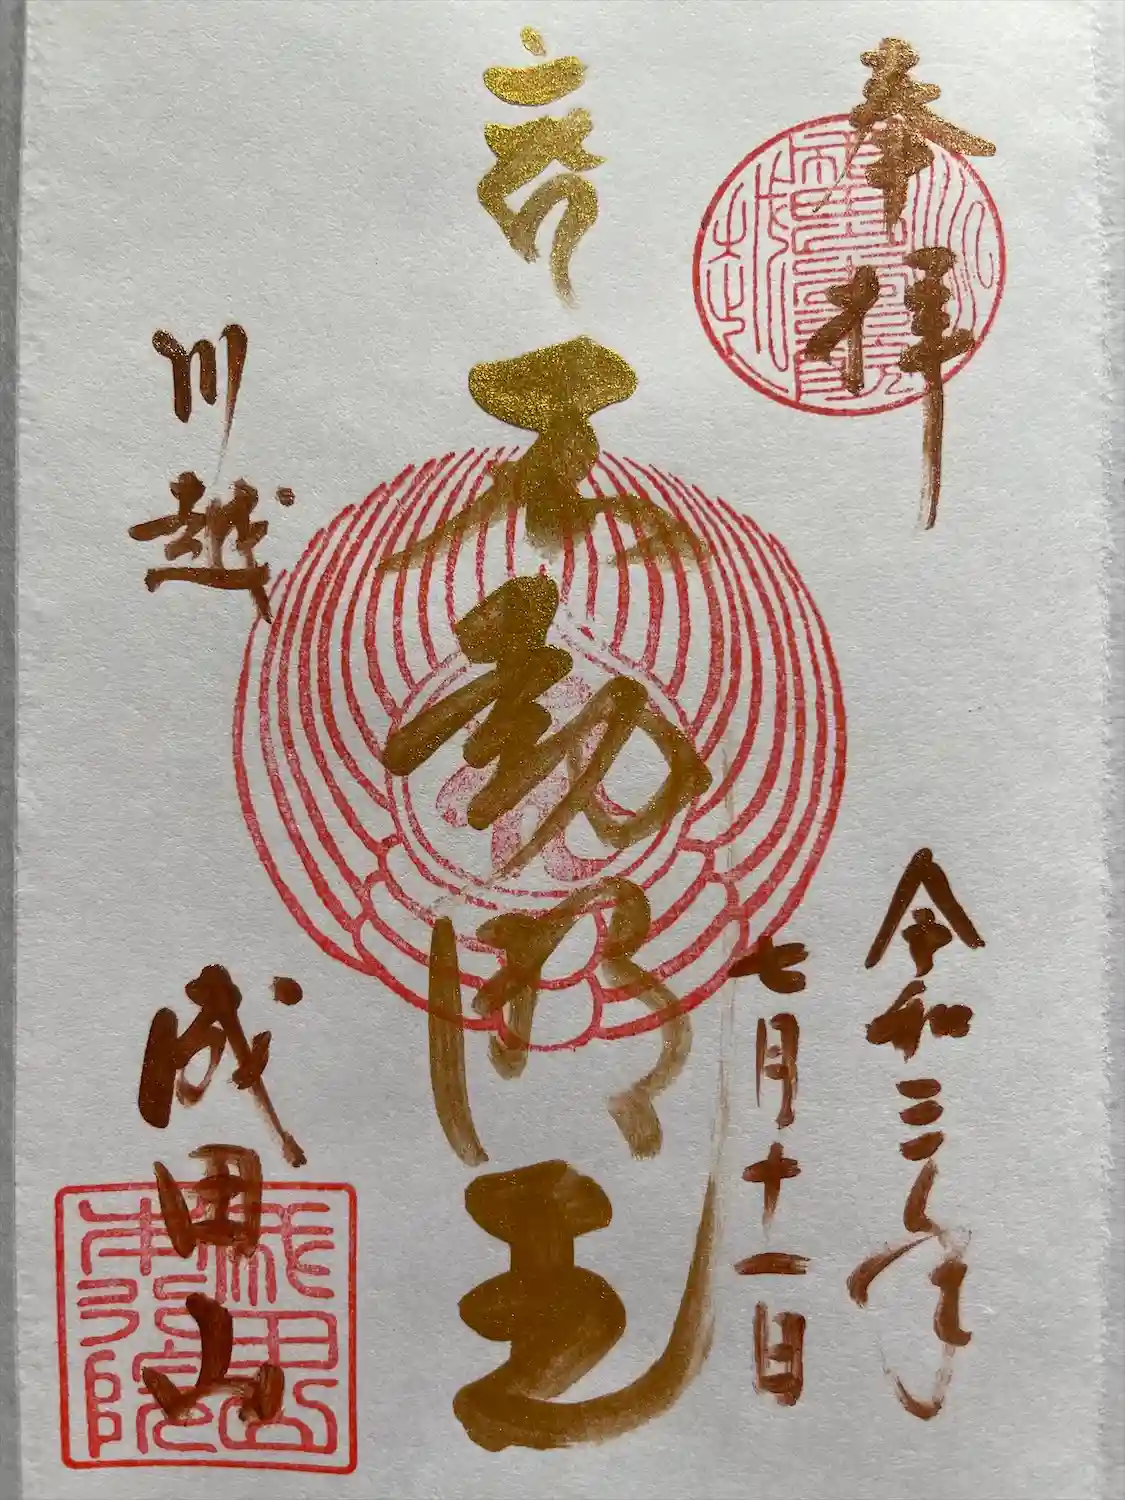 奉拝
令和三年
七月十一日
不動明王
川越
成田山
成田山
本行院